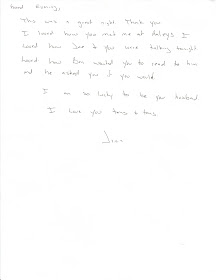 Good Evening,
This was a great night. Thank you
I loved how you met me at daleys I
loved how Jane & you were talking tonight
loved how Ben wanted you to read to him
and he asked you if you would.
I am so lucky to be your husband.
I love you tons & tons